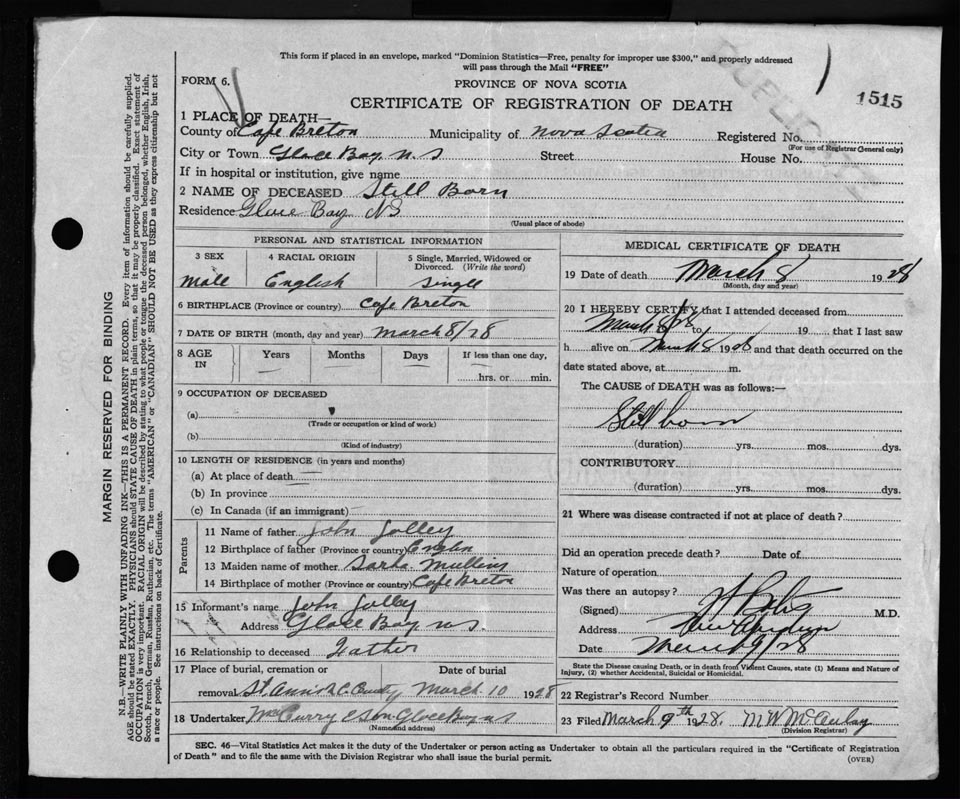 This form if placed in an envelope, marked "Dominion Statistics—Free, penalty for improper use $300," and properly addressed
will pass through the Mail "FREE"
DUPLICATE
FORM 6.
PROVINCE OF NOVA SCOTIA
CERTIFICATE OF REGISTRATION OF DEATH
1515
1 PLACE OF DEATH—
County of Cape Breton Municipality of Nova Scotia Registered No.
(For use of Registrar General only)
City or Town Glace Bay N.S Street House No.
If in hospital or institution, give name
2 NAME OF DECEASED Still Born
Residence Glace Bay NS
(Usual place of abode)
PERSONAL AND STATISTICAL INFORMATION
3 SEX
4 RACIAL ORIGIN
5 Single, Married, Widowed or
Divorced. (Write the word)
Male English Single
6 BIRTHPLACE (Province or country) Cape Breton
7 DATE OF BIRTH (month, day and year) March 8/28
8 AGE IN Years Months Days If less than one day,
hrs. or min.
9 OCCUPATION OF DECEASED
(a)
(Trade or occupation or kind of work)
(b)
(Kind of industry)
10 LENGTH OF RESIDENCE (in years and months)
(a) At place of death
(b) In province
(c) In Canada (if an immigrant)
Parents
11 Name of father John Jolley
12 Birthplace of father (Province or country)
13 Maiden name of mother Sarha Mullins
14 Birthplace of mother (Province or country) Cape Breton
15 Informant's name John Jolley
Address Glace Bay N.S.
16 Relationship to deceased Father
17 Place of burial, cremation or Date of burial
removal St. Ann March 10 1928
18 Undertaker McCurry & Son Glace Bay NS
(Name and address)
MEDICAL CERTIFICATE OF DEATH
19 Date of death March 8 1928
(Month, day and year)
20 I HEREBY CERTIFY that I attended deceased from
March 8/28 to 19 that I last saw
h alive on March 8 1928 and that death occurred on the
date stated above, at m.
The CAUSE of DEATH was as follows:—
Still born
(duration) yrs. mos. dys.
CONTRIBUTORY
(duration) yrs. mos. dys.
21 Where was disease contracted if not at place of death?
Did an operation precede death? Date of
Nature of operation
Was there an autopsy?
(Signed) M.D.
Address
Date March 9/28
State the Disease causing Death, or in death from Violent Causes, state (1) Means and Nature of
Injury, (2) whether Accidental, Suicidal or Homicidal.
22 Registrar's Record Number
23 Filed March 9th 1928. M W McAulay
(Division Registrar)
SEC. 46—Vital Statistics Act makes it the duty of the Undertaker or person acting as Undertaker to obtain all the particulars required in the "Certificate of Registration
of Death" and to file the same with the Division Registrar who shall issue the burial permit.
(OVER)
MARGIN RESERVED FOR BINDING
N.B.—WRITE PLAINLY WITH UNFADING INK—THIS IS A PERMANENT RECORD. Every item of information should be carefully supplied.
AGE should be stated EXACTLY. PHYSICIANS should STATE CAUSE OF DEATH in plain terms, so that it may be properly classified. Exact statement of
OCCUPATION is very important. RACIAL ORIGIN will be described by stating to what people or tongue the deceased person belonged, whether English, Irish,
Scotch, French, German, Russian, Ruthenian, etc. The terms "AMERICAN" or "CANADIAN" SHOULD NOT BE USED as they express citizenship but not
a race or people. See instructions on back of Certificate.